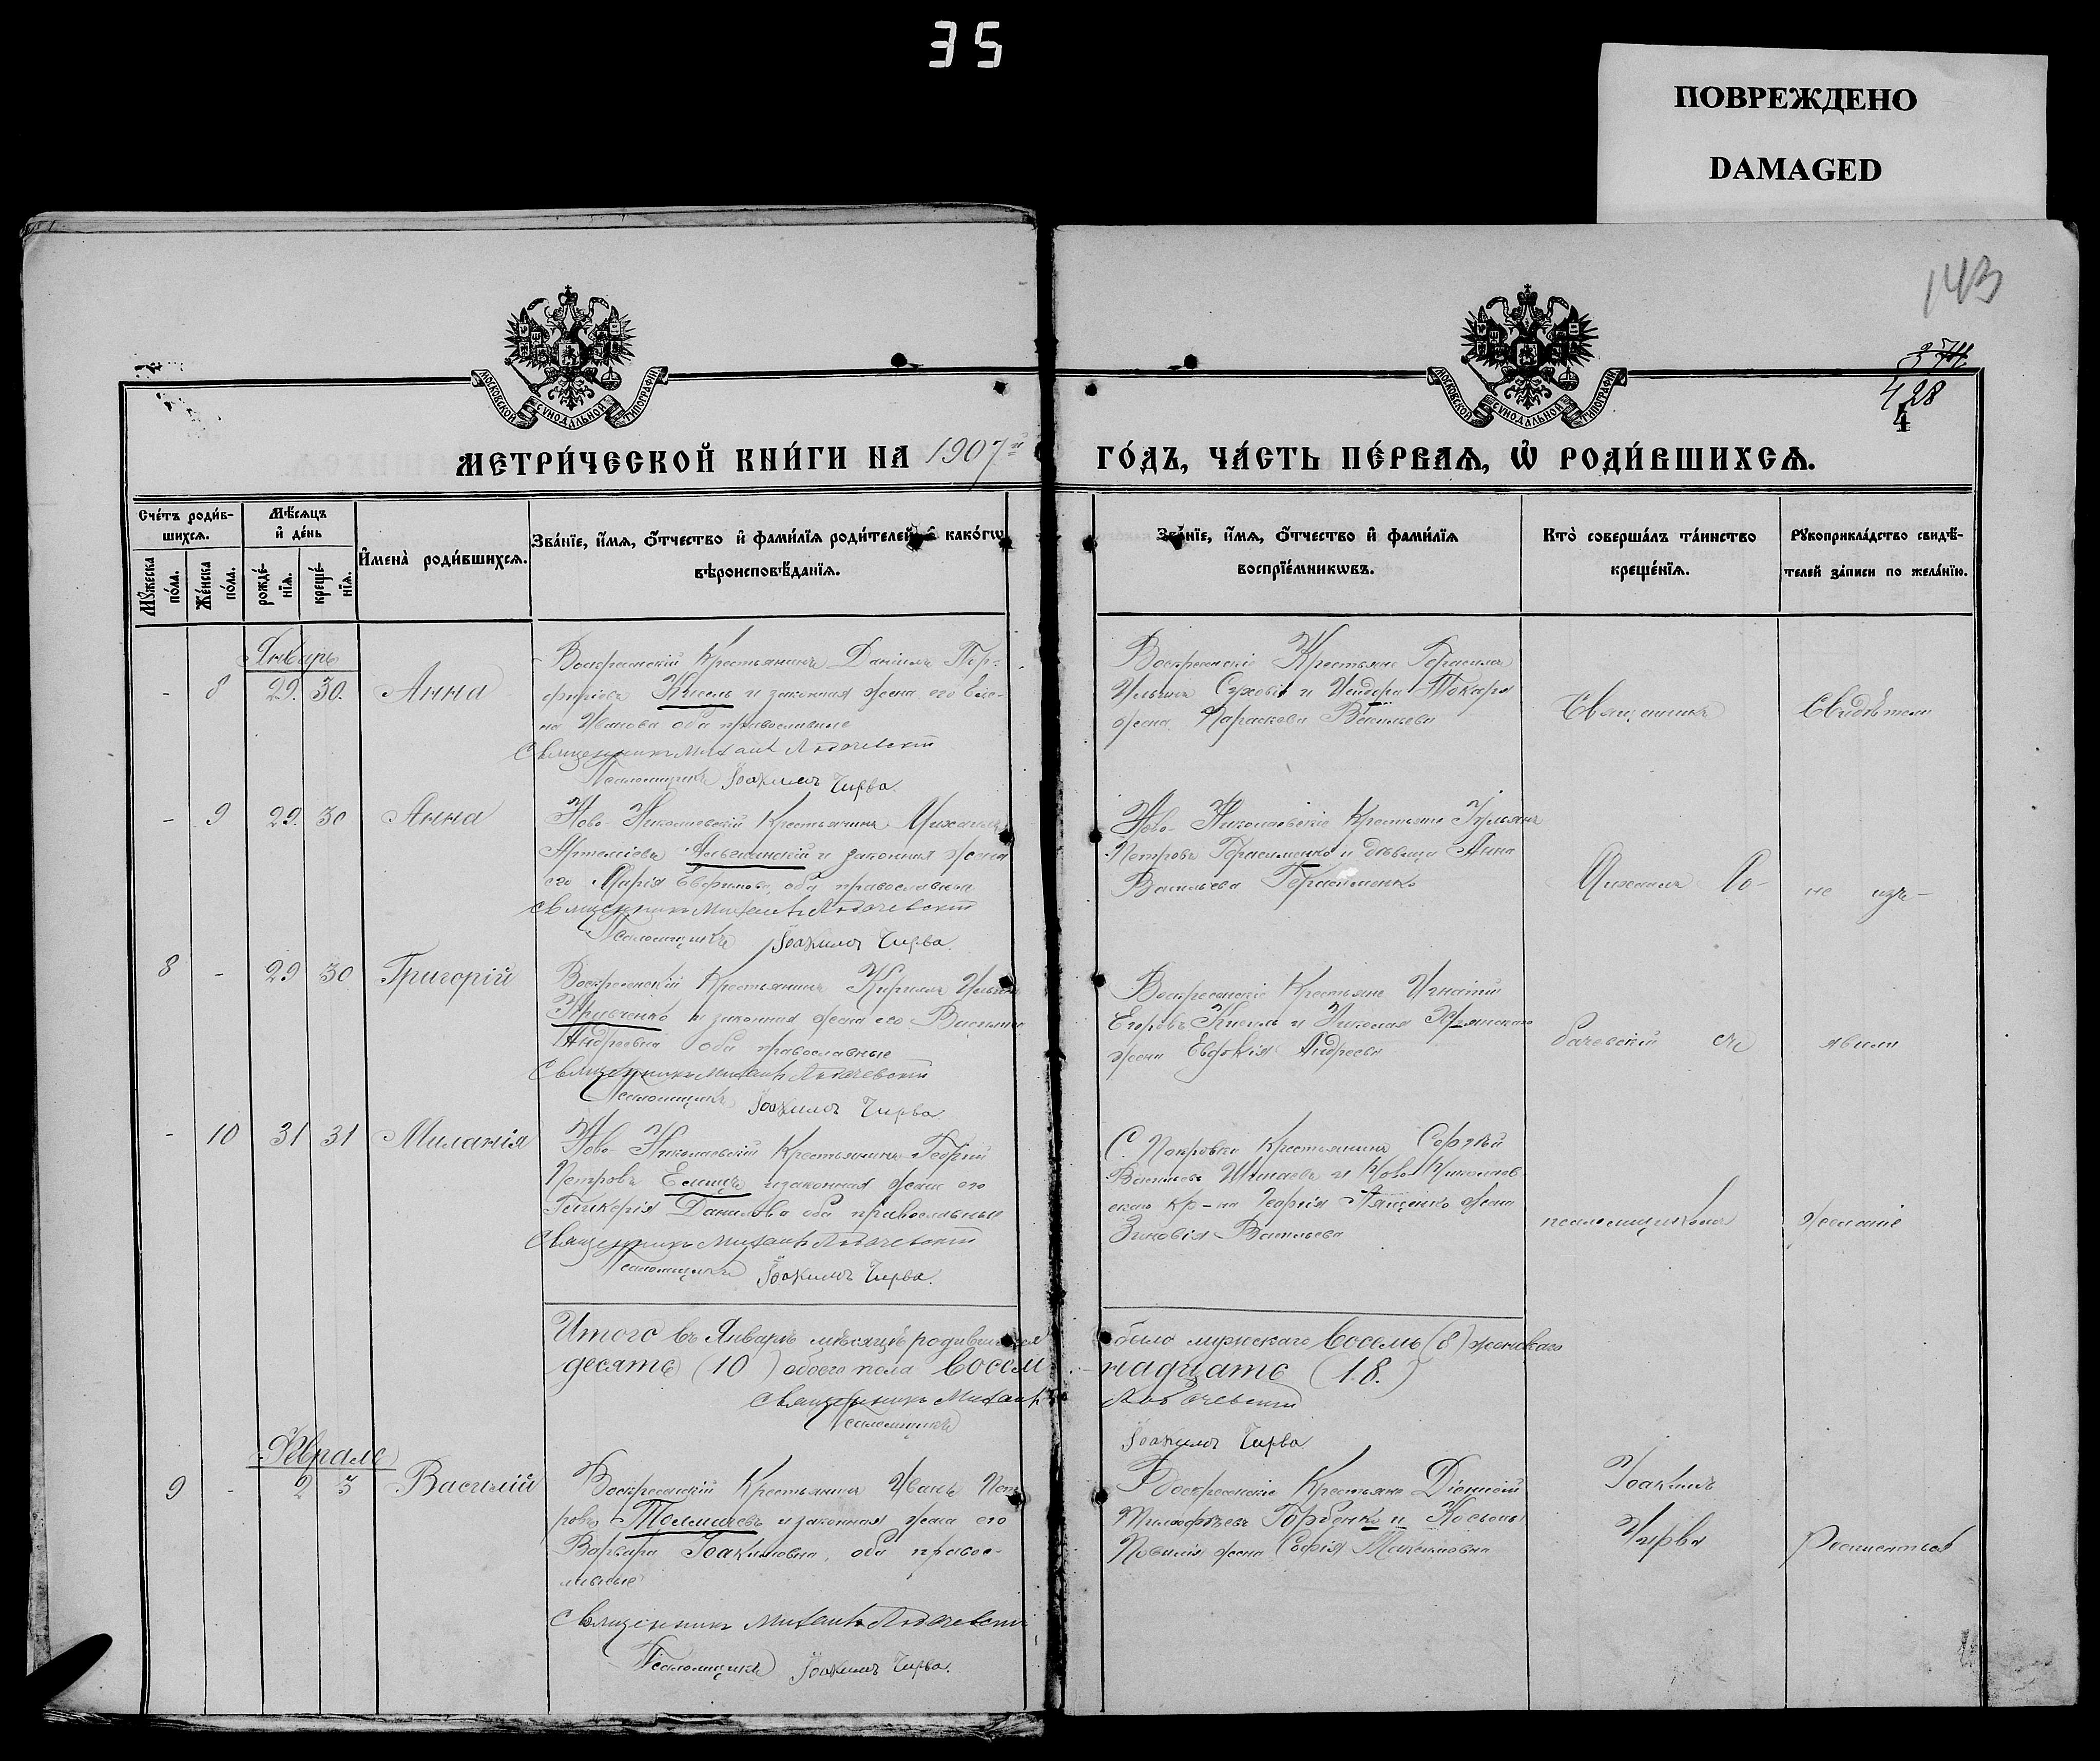 35
ПОВРЕЖДЕНО
DAMAGED
143
428
4
МОСКОВСКОЙ СѴНОДАЛЬНОЙ ТИПОГРАФІИ
МОСКОВСКОЙ СѴНОДАЛЬНОЙ ТИПОГРАФІИ
МЕТРИ́ЧЕСКОЙ КНИ́ГИ НА 1907й ГО́ДЪ, ЧА́СТЬ ПЕ́РВАѦ, Ѡ҆ РОДИ́ВШИХСѦ.
Сче́тъ роди́в-
шихсѧ.
Мѣ́сѧцъ
и҆ де́нь
Мꙋ́жеска
по́ла.
Же́нска
по́ла.
рожде́-
нїѧ.
креще́-
нїѧ.
И҆мена̀ роди́вшихсѧ.
Зва́нїе, и҆́мѧ, ѻ҆́тчество и҆ фами́лїѧ роди́телей, и҆ како́гѡ
вѣроисповѣ́данїѧ.
Зва́нїе, и҆́мѧ, ѻ҆́тчество и҆ фами́лїѧ
воспрїе́мникѡвъ.
Кто̀ соверша́лъ та́инство
креще́нїѧ.
Рꙋкоприкла́дство свидѣ́-
телей за́писи по жела́нїю.
Январь
- 8 29. 30. Анна
Воскресенскій Крестьянинъ Даніилъ Пор-
фиріевъ Кисель и законная жена его Еле-
на Иванова оба православные
Священникъ Михаилъ
Псаломщикъ Іоакимъ Чирва.
Воскресенскіе Крестьяне Герасимъ
Ильинъ и Токаря
жена Параскева Васильева
Священникъ
Свидѣтели
- 9 29. 30 Анна
Ново-Николаевскій Крестьянинъ Михаилъ
Артеміевъ и законная жена
его Марія Евфимова, оба православные
Священникъ Михаилъ
Псаломщикъ Іоакимъ Чирва.
Ново-Николаевскіе Крестьяне Іульянъ
Петровъ Герасименко и дѣвица Анна
Васильева Герасименко
Михаилъ
не изъ-
8 - 29 30 Григорій
Воскресенскій Крестьянинъ Кириллъ Ильинъ
Кривченко и законная жена его
Андреевна оба православные
Священникъ Михаилъ
Псаломщикъ Іоакимъ Чирва
Воскресенскіе Крестьяне Игнатій
Егоровъ Кисель и Николая
жена Евфокія Андреева
бачевскій съ
явили
- 10 31 31 Миланія
Ново-Николаевскій Крестьянинъ Георгій
Петровъ и законная жена его
Гликерія Данилова оба православные
Священникъ Михаилъ
Псаломщикъ Іоакимъ Чирва.
С. Покровки Крестьянинъ
и Ново-Николаев-
скаго кр-на Георгія Лященко жена
Зиновія Васильева
псаломщикомъ
желаніе
Итого въ Январѣ мѣсяцѣ родившихся было мужскаго восемь (8) женскаго
десять (10) обоего пола восем- надцать (18.)
Священникъ Михаилъ
Псаломщикъ Іоакимъ Чирва
Февраль
9 - 2 3 Василій
Воскресенскій Крестьянинъ Иванъ Пет-
ровъ Толмачевъ и законная жена его
Варвара Іоакимовна, оба правос-
лавные
Священникъ Михаилъ
Псаломщикъ Іоакимъ Чирва.
Воскресенскіе Крестьяне Діонисій
Тимофѣевъ Горбенко и
жена Софія
Іоакимъ
Чирва